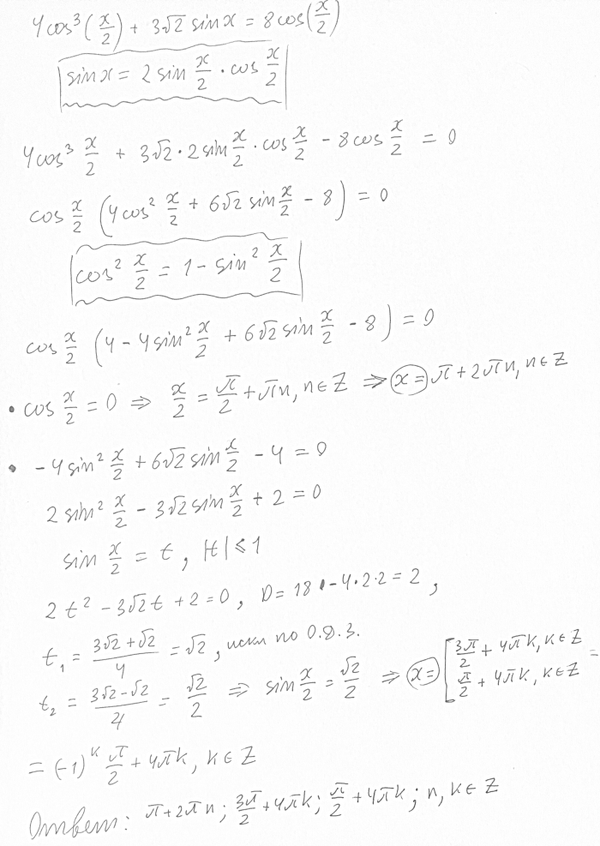 4cos³(x/2) + 3√2 sinx = 8cos(x/2)
sinx = 2 sin x/2 · cos x/2
4cos³ x/2 + 3√2 · 2sin x/2 · cos x/2 - 8cos x/2 = 0
cos x/2 (4cos² x/2 + 6√2 sin x/2 - 8) = 0
cos² x/2 = 1 - sin² x/2
cos x/2 (4 - 4sin² x/2 + 6√2 sin x/2 - 8) = 0
• cos x/2 = 0 ⇒ x/2 = π/2 + πn, n ∈ Z ⇒ x = π + 2πn, n ∈ Z
• -4sin² x/2 + 6√2 sin x/2 - 4 = 0
2sin² x/2 - 3√2 sin x/2 + 2 = 0
sin x/2 = t, |t| ≤ 1
2t² - 3√2t + 2 = 0, D = 18 - 4·2·2 = 2,
t₁ = (3√2 + √2)/4 = √2, искл по О.Д.З.
t₂ = (3√2 - √2)/4 = √2/2 ⇒ sin x/2 = √2/2 ⇒ x = [ 3π/2 + 4πk, k ∈ Z
π/2 + 4πk, k ∈ Z =
= (-1)ᵏ π/2 + 4πk, k ∈ Z
Ответ: π + 2πn; 3π/2 + 4πk; π/2 + 4πk; n, k ∈ Z